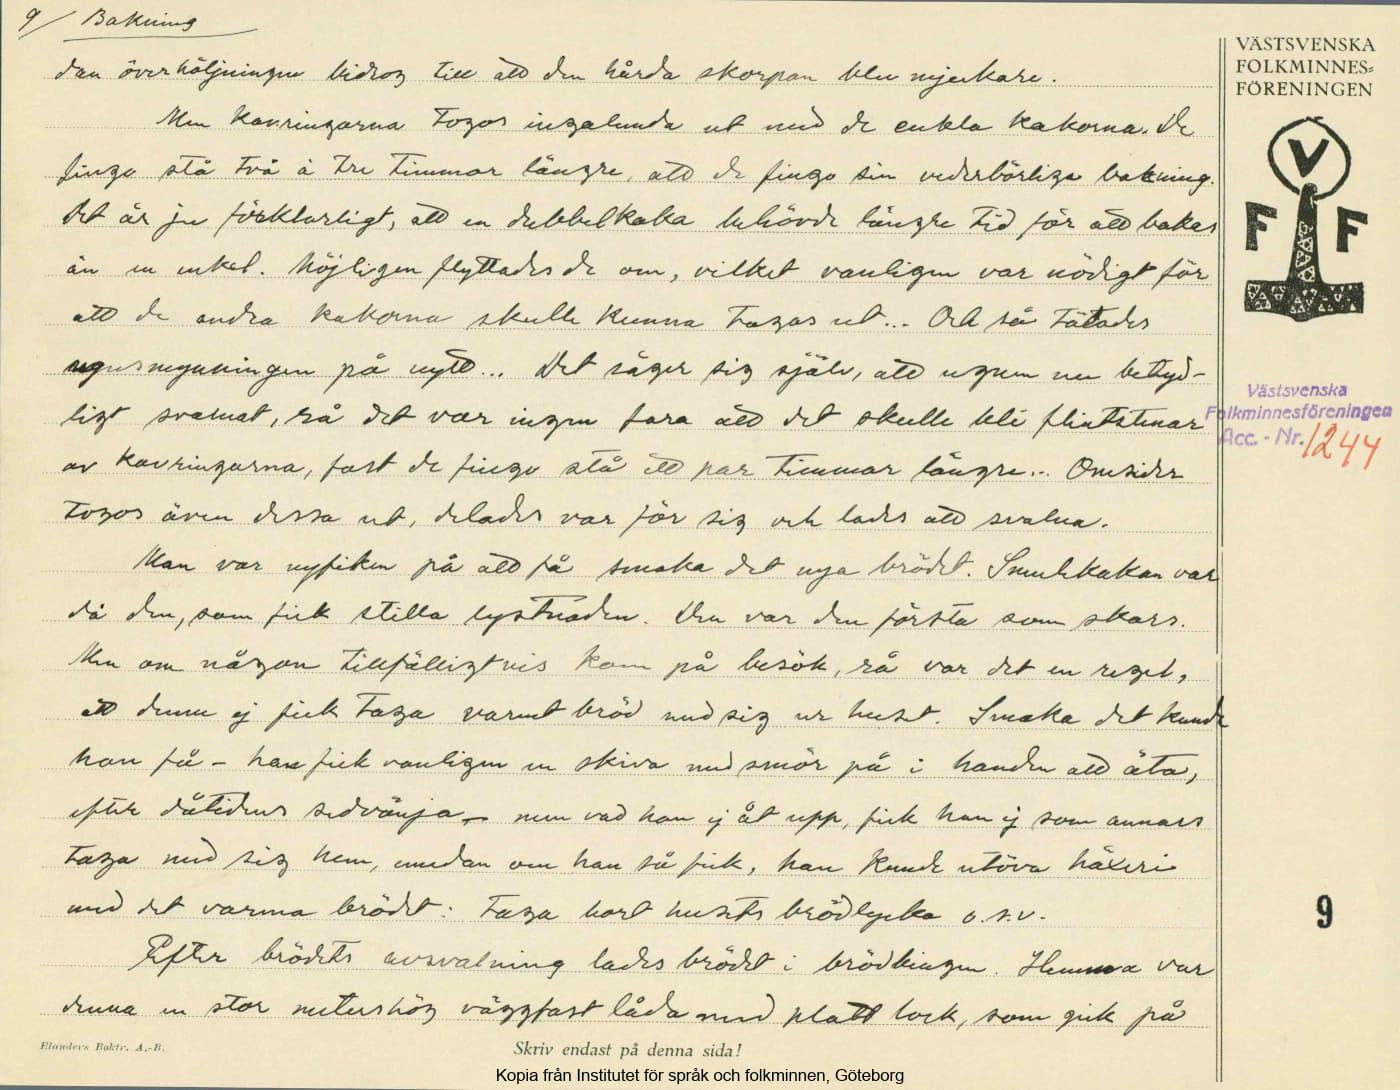 9/ Bakning
dan överhöljningen bidrog till att den hårda skorpan blev mjukare.
Men kavringarna togos ingalunda ut med de enkla kakorna. De
fingo stå två à tre timmar längre, att de fingo sin vederbörliga bakning.
Det är ju förklarligt, att en dubbelkaka behövde längre tid för att bakas
än en enkel. Möjligen flyttades de om, vilket vanligen var nödigt för
att de andra kakorna skulle kunna tagas ut... Och så tätades
ugnsmynningen på nytt... Det säger sig själv, att ugnen nu betyd-
ligt svalnat, så det var ingen fara att det skulle bli flintstenar
av kavringarna, fast de fingo stå ett par timmar längre... Omsider
togos även dessa ut, delades var för sig och lades att svalna.
Man var nyfiken på att få smaka det nya brödet. Smulekakan var
då den, som fick stilla lystnaden. Den var den första som skars.
Men om någon tillfälligtvis kom på besök, så var det en regel,
att denne ej fick taga varmt bröd med sig ur huset. Smaka det kunde
han få - han fick vanligen en skiva med smör på i handen att äta,
efter dåtidens sedvänja - men vad han ej åt upp, fick han ej som annars
taga med sig hem, emedan om han så fick, han kunde utöva häxeri
med det varma brödet: taga bort husets brödlycka o.s.v.
Efter brödets avsvalning lades brödet i brödbingen. Hemma var
denna en stor metershög väggfast låda med platt lock, som gick på
VÄSTSVENSKA
FOLKMINNES=
FÖRENINGEN
V
F F
Västsvenska
Folkminnesföreningen
Acc. - Nr. 1244
9
Elanders Boktr. A.-B.
Skriv endast på denna sida!
Kopia från Institutet för språk och folkminnen, Göteborg